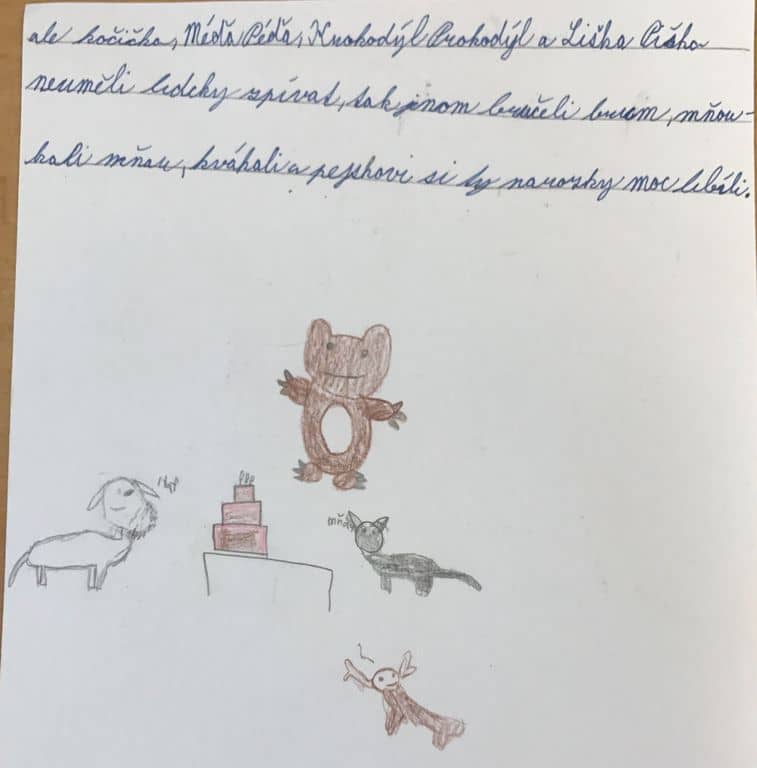 ale kočička, Méďa Péďa, Krokodýl Prokodýl a Liška Piška
neuměli lidcky zpívat, tak jnom bručeli brum, mňou-
kali mňau, kvákali a pejskovi si ty narozky moc libíli.
mňau